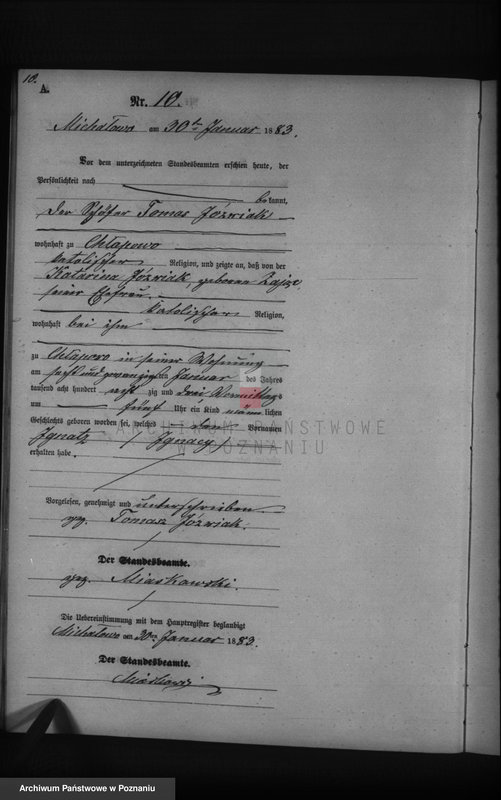 10.
A.
Nr. 10.
Michałowo am 30ten Januar 1883.
Vor dem unterzeichneten Standesbeamten erschien heute, der
Persönlichkeit nach
bekannt,
der Schäfer Tomas Jóźwiak
wohnhaft zu Chłapowo
katolischer Religion, und zeigte an, daß von der
Katarina Jóźwiak, geborene Zajze,
seiner Ehefrau
katolischer Religion,
wohnhaft bei ihm
zu Chłapowo in seiner Wohnung
am sechs und zwanzigsten Januar des Jahres
tausend acht hundert achtzig und drei, Vormittags
um fünf Uhr ein Kind männlichen
Geschlechts geboren worden sei, welches den Vornamen
Ignatz / Ignacy /
erhalten habe.
Vorgelesen, genehmigt und unterschrieben
gez. Tomasz Jóźwiak.
Der Standesbeamte.
gez. Miaskowski.
Die Uebereinstimmung mit dem Hauptregister beglaubigt
Michałowo am 30ten Januar 1883.
Der Standesbeamte.
Miaskowski
ARCHIWUM PAŃSTWOWE
W POZNANIU
Archiwum Państwowe w Poznaniu